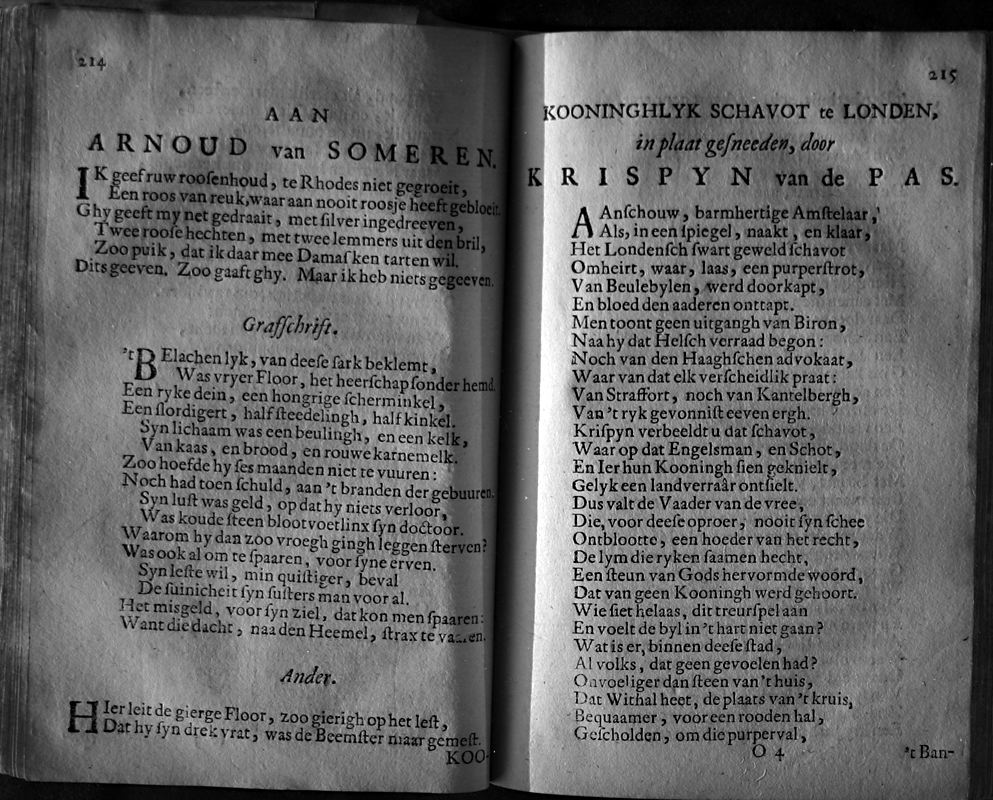 214
AAN
ARNOUD van SOMEREN.
IK geef ruw roosenhoud, te Rhodes niet gegroeit,
Een roos van reuk, waar aan nooit roosje heeft gebloeit.
Ghy geeft my net gedraait, met silver ingedreeven,
Twee roose hechten, met twee lemmers uit den bril,
Zoo puik, dat ik daar mee Damasken tarten wil.
Dits geeven. Zoo gaaft ghy. Maar ik heb niets gegeeven.
Grafschrift.
'tBElachen lyk, van deese sark beklemt,
Was vryer Floor, het heerschap sonder hemd.
Een ryke dein, een hongrige scherminkel,
Een slordigert, half steedelingh, half kinkel.
Syn lichaam was een beulingh, en een kelk,
Van kaas, en brood, en rouwe karnemelk.
Zoo hoefde hy ses maanden niet te vuuren:
Noch had toen schuld, aan 't branden der gebuuren.
Syn lust was geld, op dat hy niets verloor,
Was koude steen blootvoetlinx syn doctoor.
Waarom hy dan zoo vroegh gingh leggen sterven?
Was ook al om te spaaren, voor syne erven.
Syn leste wil, min quistiger, beval
De suinicheit syn susters man voor al.
Het misgeld, voor syn ziel, dat kon men spaaren:
Want die dacht, naa den Heemel, strax te vaaren.
Ander.
HIer leit de gierge Floor, zoo gierigh op het lest,
Dat hy syn drek vrat, was de Beemster maar gemest.
KOO-
215
KOONINGHLYK SCHAVOT te LONDEN,
in plaat gesneeden, door
KRISPYN van de PAS.
AAnschouw, barmhertige Amstelaar,
Als, in een spiegel, naakt, en klaar,
Het Londensch swart geweld schavot
Omheirt, waar, laas, een purperstrot,
Van Beulebylen, werd doorkapt,
En bloed den aaderen onttapt.
Men toont geen uitgangh van Biron,
Naa hy dat Helsch verraad begon:
Noch van den Haaghschen advokaat,
Waar van dat elk verscheidlik praat:
Van Straffort, noch van Kantelbergh,
Van 't ryk gevonnist eeven ergh.
Krispyn verbeeldt u dat schavot,
Waar op dat Engelsman, en Schot,
En Ier hun Kooningh sien geknielt,
Gelyk een landverraâr ontsielt.
Dus valt de Vaader van de vree,
Die, voor deese oproer, nooit syn schee
Ontblootte, een hoeder van het recht,
De lym die ryken saamen hecht,
Een steun van Gods hervormde woord,
Dat van geen Kooningh werd gehoort.
Wie siet helaas, dit treurspel aan
En voelt de byl in 't hart niet gaan?
Wat is er, binnen deese stad,
Al volks, dat geen gevoelen had?
Onvoeliger dan steen van 't huis,
Dat Withal heet, de plaats van 't kruis,
Bequaamer, voor een rooden hal,
Gescholden, om die purperval,
O 4
't Ban-